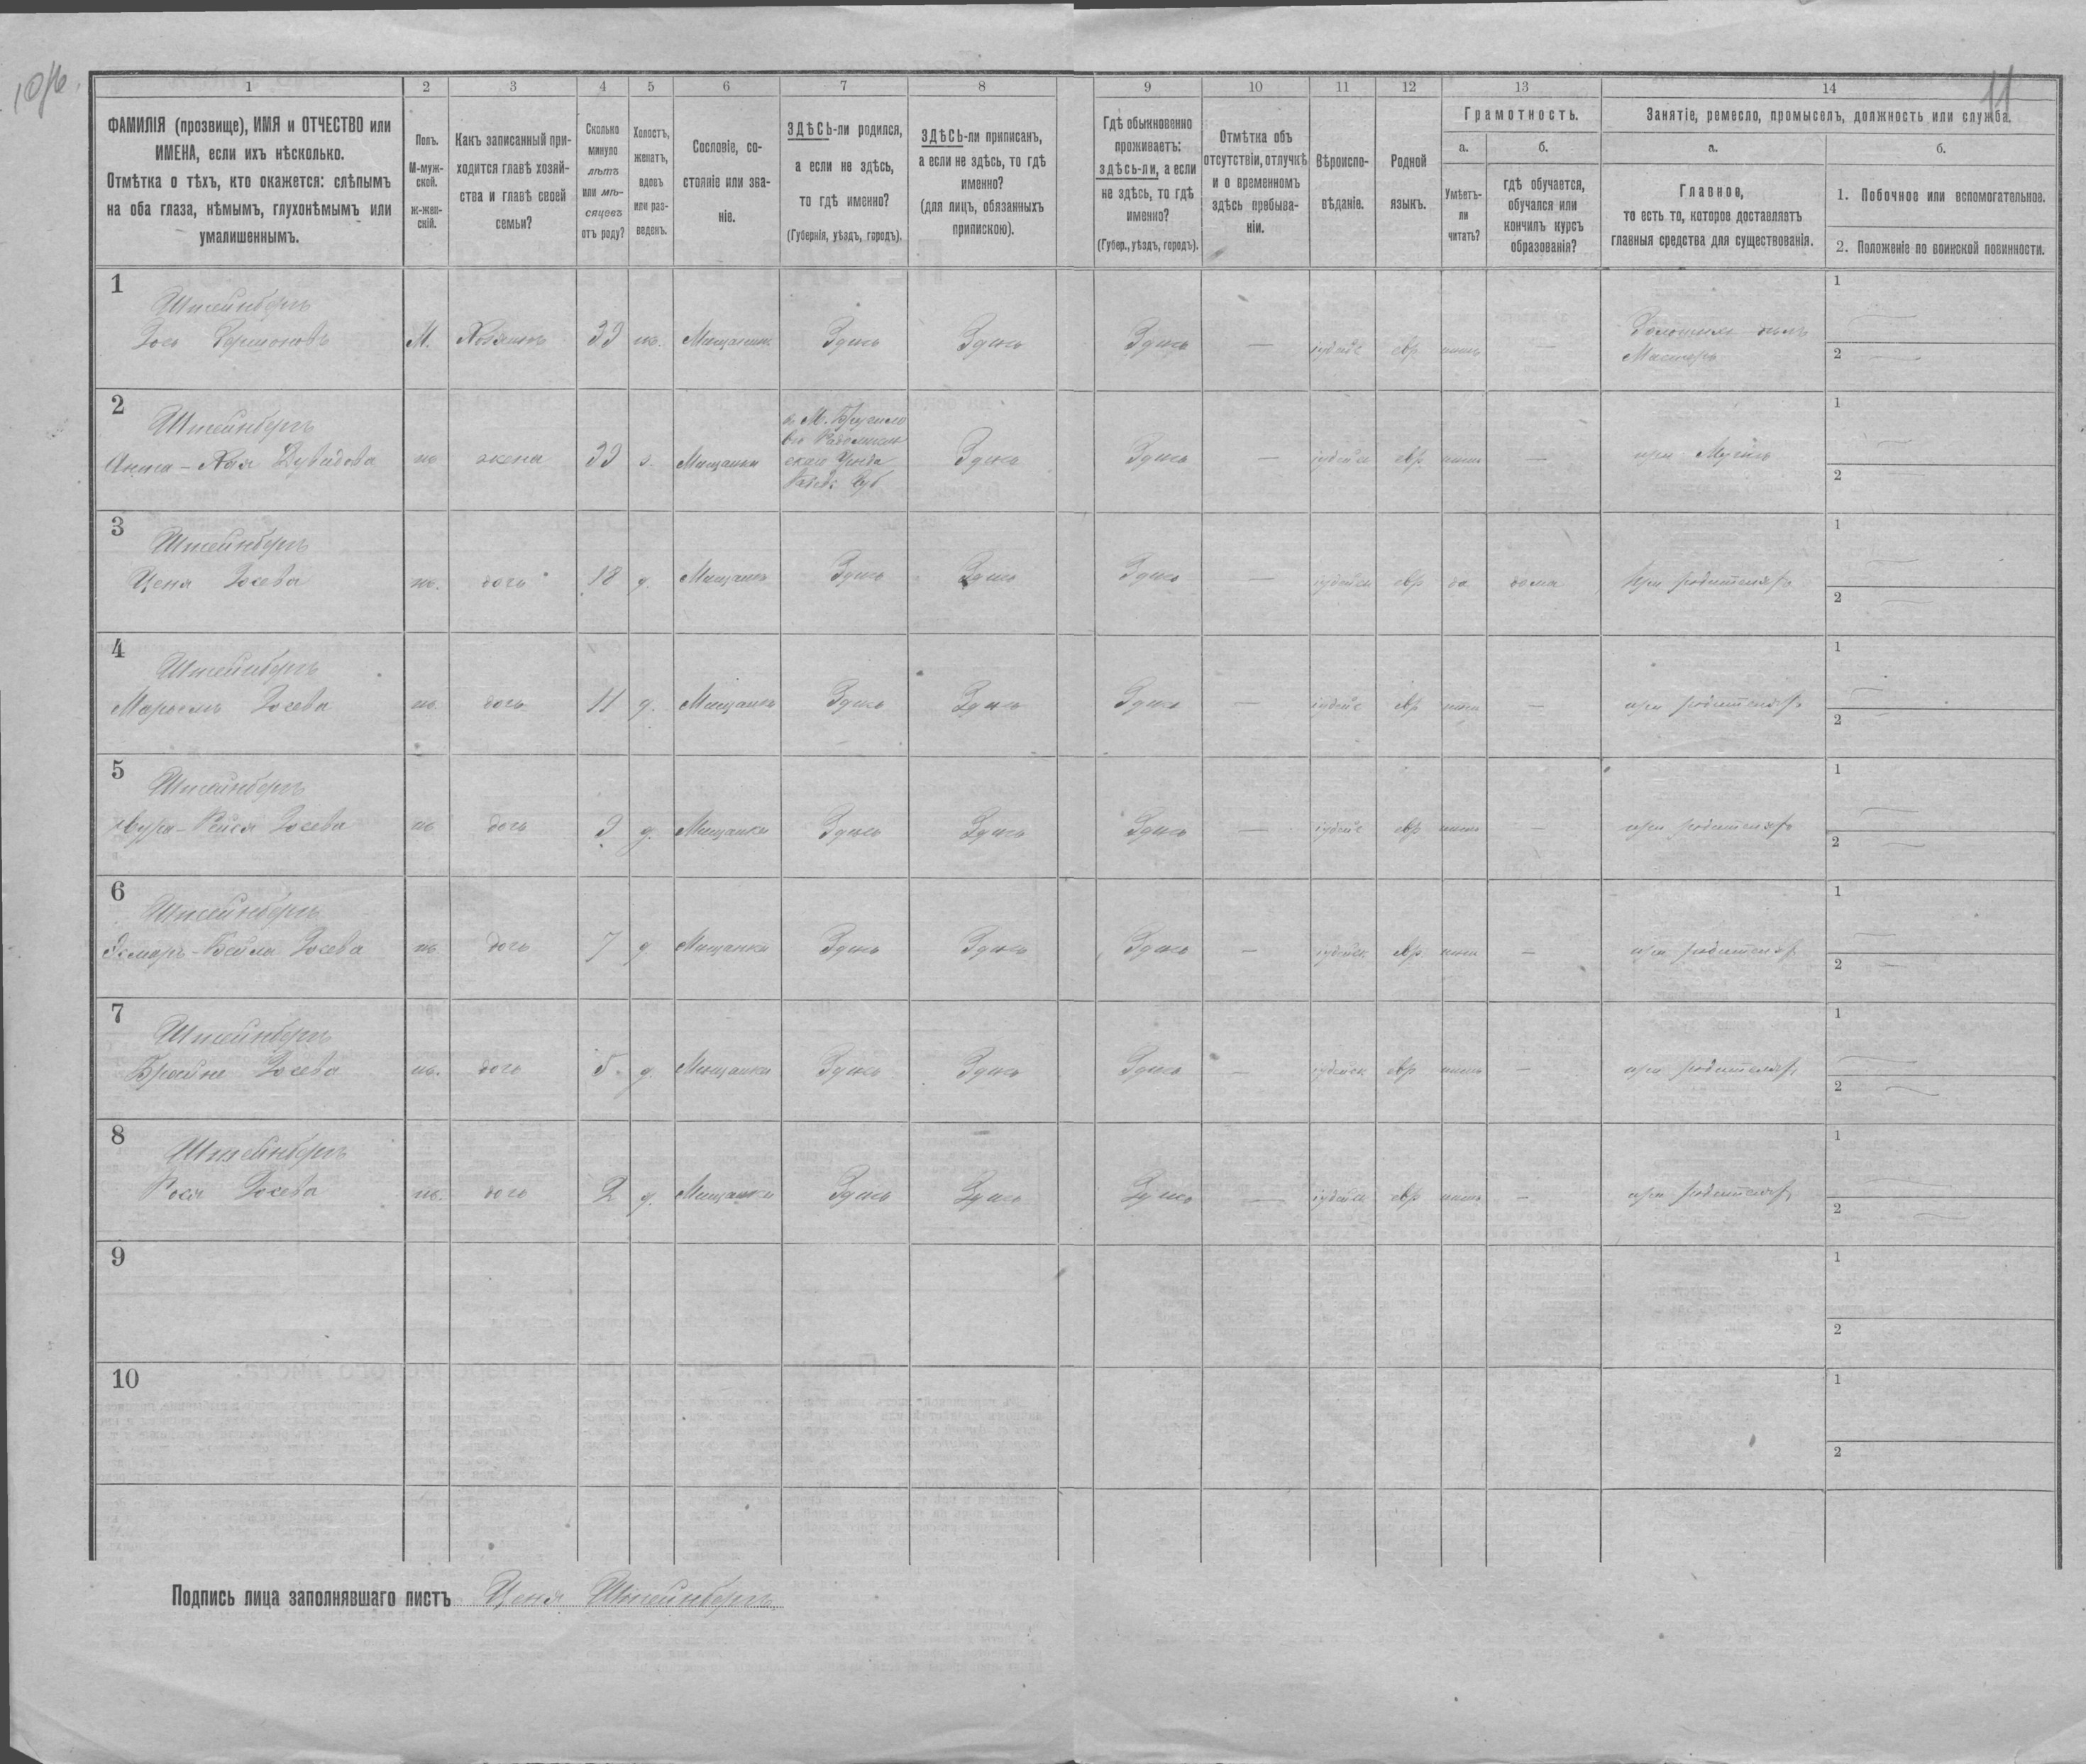 11
1
2
3
4
5
6
7
8
9
10
11
12
13
14
ФАМИЛІЯ (прозвище), ИМЯ и ОТЧЕСТВО или
ИМЕНА, если ихъ нѣсколько.
Отмѣтка о тѣхъ, кто окажется: слѣпымъ
на оба глаза, нѣмымъ, глухонѣмымъ или
умалишеннымъ.
Полъ.
М-муж-
ской.
Ж-жен-
скій.
Какъ записанный при-
ходится главѣ хозяй-
ства и главѣ своей
семьи?
Сколько
минуло
лѣтъ
или мѣ-
сяцевъ
отъ роду?
Холостъ,
женатъ,
вдовъ
или раз-
веденъ.
Сословіе, со-
стояніе или зва-
ніе.
ЗДѢСЬ-ли родился,
а если не здѣсь,
то гдѣ именно?
(Губернія, уѣздъ, городъ).
ЗДѢСЬ-ли приписанъ,
а если не здѣсь, то гдѣ
именно?
(для лицъ, обязанныхъ
припискою).
Гдѣ обыкновенно
проживаетъ:
здѣсь-ли, а если
не здѣсь, то гдѣ
именно?
(Губер., уѣздъ, городъ).
Отмѣтка объ
отсутствіи, отлучкѣ
и о временномъ
здѣсь пребыва-
ніи.
Вѣроиспо-
вѣданіе.
Родной
языкъ.
Грамотность.
а.
Умѣетъ-
ли
читать?
б.
гдѣ обучается,
обучался или
кончилъ курсъ
образованія?
Занятіе, ремесло, промыселъ, должность или служба.
а.
Главное,
то есть то, которое доставляетъ
главныя средства для существованія.
б.
1. Побочное или вспомогательное.
2. Положеніе по воинской повинности.
1
Штейнбергъ
М. Хозяинъ 39 Мещанинъ Здѣсь Здѣсь Здѣсь — евр —
Мастеръ
1
2
2
Штейнбергъ
жена 39 з. Мещанка
Здѣсь Здѣсь — евр — при Мужѣ
1
2
3
Штейнбергъ
Ценя Іосева ж. дочь 18 д. Мещанка Здѣсь Здѣсь Здѣсь — іудейск евр да дома при родителяхъ
1
2
4
Штейнбергъ
Іосева ж. дочь 11 д. Мещанка Здѣсь Здѣсь Здѣсь — евр — при родителяхъ
1
2
5
Штейнбергъ
Іосева ж дочь 9 д. Мещанка Здѣсь Здѣсь Здѣсь — евр — при родителяхъ
1
2
6
Штейнбергъ
Бейла Іосева ж дочь 7 д Мещанка Здѣсь Здѣсь Здѣсь — іудейск евр — при родителяхъ
1
2
7
Штейнбергъ
Іосева ж. дочь 5 д. Мещанка Здѣсь Здѣсь Здѣсь — іудейск евр — при родителяхъ
1
2
8
Штейнбергъ
Іосева ж. дочь 2 д. Мещанка Здѣсь Здѣсь Здѣсь — іудейск евр — при родителяхъ
1
2
9
1
2
10
1
2
Подпись лица заполнявшаго листъ Ценя Штейнбергъ